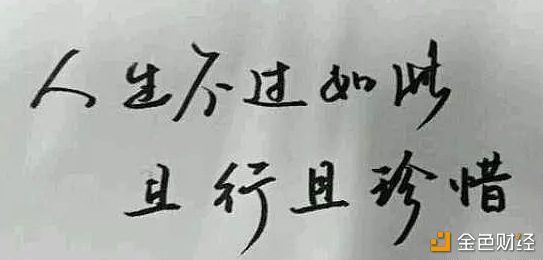 人生不过如此
且行且珍惜
金色财经